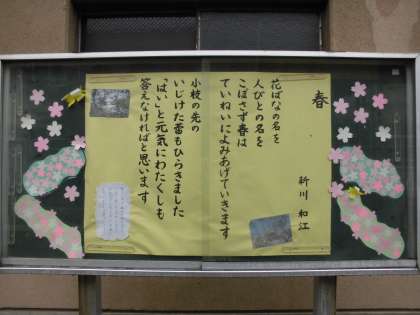 春
新川 和江
花ばなの名を
人びとの名を
こぼさず春は
ていねいによみあげていきます
小枝の先の
いじけた蕾もひらきました
「はい」と元気にわたくしも
答えなければと思います